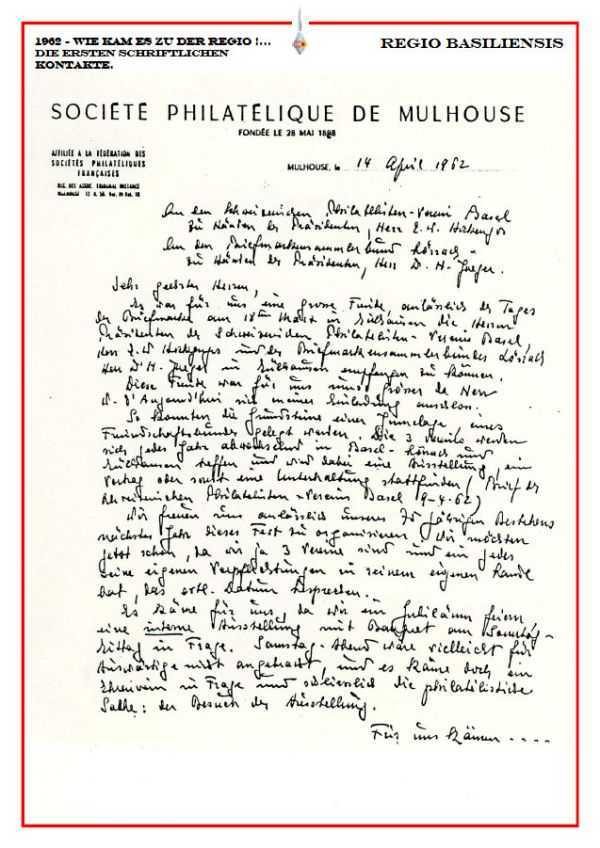 1962 - WIE KAM ES ZU DER REGIO !...
DIE ERSTEN SCHRIFTLICHEN
KONTAKTE.
REGIO BASILIENSIS
SOCIÉTÉ PHILATÉLIQUE DE MULHOUSE
FONDÉE LE 28 MAI 1888
AFFILIÉE A LA FÉDÉRATION DES
SOCIÉTÉS PHILATÉLIQUES
FRANÇAISES
MULHOUSE, le 14 April 1962
An den Schweizerischen Philatelisten-Verein Basel
zu Händen des Präsidenten, Herr E.W.
An den Briefmarkensammlerbund Lörrach
zu Händen des Präsidenten, Herr D. H. Jaeger.
Sehr geehrte Herren,
Es war für uns eine grosse Freude, anlässlich des Tages
der Briefmarke am 18ten März in Mülhausen die Herren
Präsidenten des Schweizerischen Philatelisten-Vereins Basel,
Herr E.W. und des Briefmarkensammlerbundes Lörrach
Herr D. H. Jaeger in Mülhausen empfangen zu können.
Diese Freude war für uns umso grösser da Herr
W. d'Aujourd'hui sich meiner Einladung anschloss.
So konnten die Grundsteine einer Grundlage eines
Freundschaftsbundes gelegt werden. Die 3 Vereine werden
sich jedes Jahr abwechselnd in Basel - Lörrach und
Mülhausen treffen und wird dabei eine Ausstellung, ein
Vortrag oder sonst eine Unterhaltung stattfinden (Brief des
Schweizerischen Philatelisten-Vereins Basel 9-4-62)
Wir freuen uns anlässlich unseres 75 jährigen Bestehens
nächstes Jahr dieses Fest zu organisieren. Wir möchten
jetzt schon, da wir ja 3 Vereine sind und ein jedes
seine eigenen Verpflichtungen in seinem eigenen Lande
hat, das Datum besprechen.
Es käme für uns, da wir ein Jubiläum feiern
eine interne Ausstellung mit Bankett am Sonntag-
Mittag in Frage. Samstag-Abend wäre vielleicht für
Auswärtige nicht angebracht, und es käme doch ein
in Frage und schliesslich die philatelistische
Sache: der Besuch der Ausstellung.
Für uns kämen ....